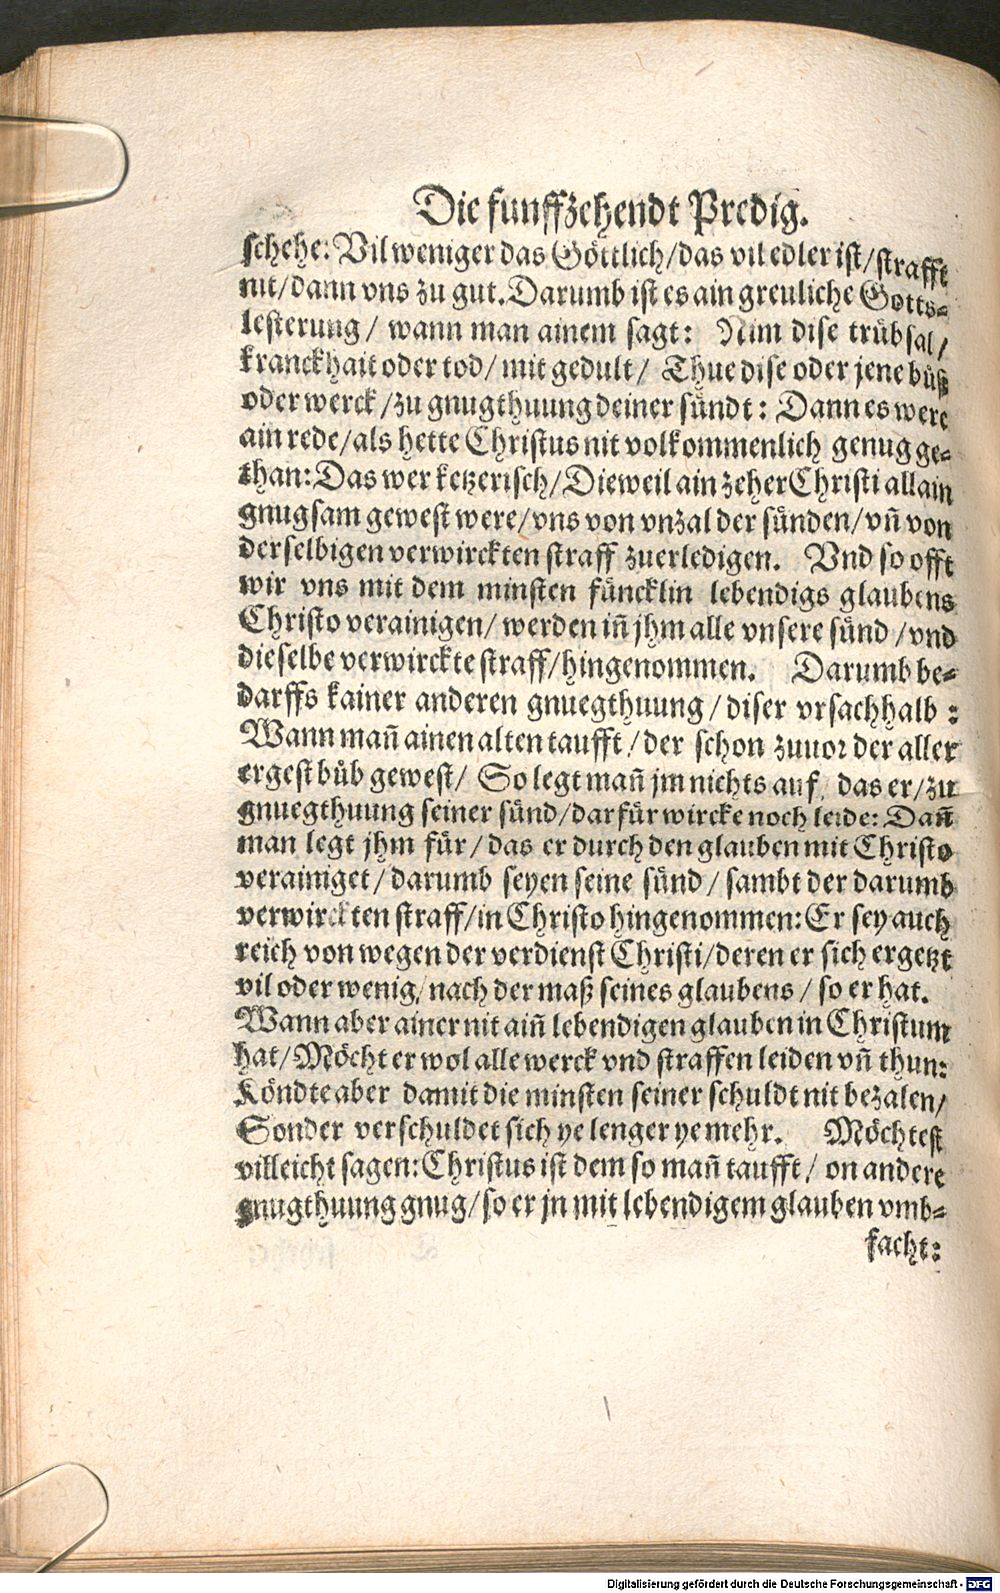 Die funffzehendt Predig.
schehe: Vil weniger das Göttlich/das vil edler ist/strafft
nit/dann vns zu gut. Darumb ist es ain greuliche Gotts-
lesterung/ wann man ainem sagt: Nim dise trübsal/
kranckhait oder tod/ mit gedult/ Thue dise oder jene büß
oder werck/zu gnugthuung deiner sündt: Dann es were
ain rede/als hette Christus nit volkommenlich genug ge-
than: Das wer ketzerisch/Dieweil ain zeher Christi allain
gnugsam gewest were/vns von vnzal der sünden/vñ von
derselbigen verwirckten straff zuerledigen. Vnd so offt
wir vns mit dem minsten füncklin lebendigs glaubens
Christo verainigen/ werden iñ jhm alle vnsere sünd /vnd
dieselbe verwirckte straff/hingenommen. Darumb be-
darffs kainer anderen gnuegthuung/diser vrsachhalb:
Wann mañ ainen alten taufft/der schon zuuor der aller
ergest büb gewest/ So legt mañ jm nichts auf, das er/zu
gnuegthuung seiner sünd/darfür wircke noch leide: Dañ
man legt jhm für/das er durch den glauben mit Christo
verainiget/darumb seyen seine sünd/ sambt der darumb
verwirckten straff/in Christo hingenommen: Er sey auch
reich von wegen der verdienst Christi/deren er sich ergetzt
vil oder wenig/nach der maß seines glaubens/ so er hat.
Wann aber ainer nit aiñ lebendigen glauben in Christum
hat/Möcht er wol alle werck vnd straffen leiden vñ thun:
Köndte aber damit die minsten seiner schuldt nit bezalen/
Sonder verschuldet sich ye lenger ye mehr. Möchtest
villeicht sagen: Christus ist dem so mañ taufft/ on andere
gnugthuung gnug/so er jn mit lebendigem glauben vmb-
facht:
Digitalisierung gefördert durch die Deutsche Forschungsgemeinschaft - DFG